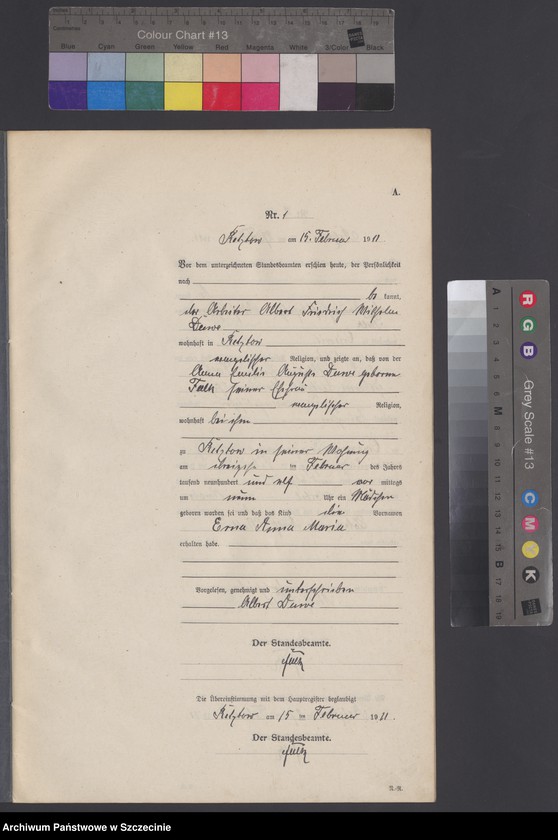 Colour Chart #13
Blue Cyan Green Yellow Red Magenta White 3/Color Black
A.
Nr. 1
am 15. Februar 1911.
Vor dem unterzeichneten Standesbeamten erschien heute, der Persönlichkeit
nach
be kannt,
der Arbeiter Albert Friedrich Wilhelm
wohnhaft in
evangelischer Religion, und zeigte an, daß von der
Anna Emilie Auguste geborene
seiner Ehefrau
evangelischer Religion,
wohnhaft bei ihm
zu in seiner Wohnung
am im Februar des Jahres
tausend neunhundert und elf vor mittags
um neun Uhr ein Mädchen
geboren worden sei und daß das Kind die Vornamen
Erna Anna Maria
erhalten habe.
Vorgelesen, genehmigt und unterschrieben
Albert
Der Standesbeamte.
Die Übereinstimmung mit dem Hauptregister beglaubigt
am 15 ten Februar 1911.
Der Standesbeamte.
A.-R.
Grey Scale #13
A
M
B
R
G
B
C
M
Y
K
Archiwum Państwowe w Szczecinie